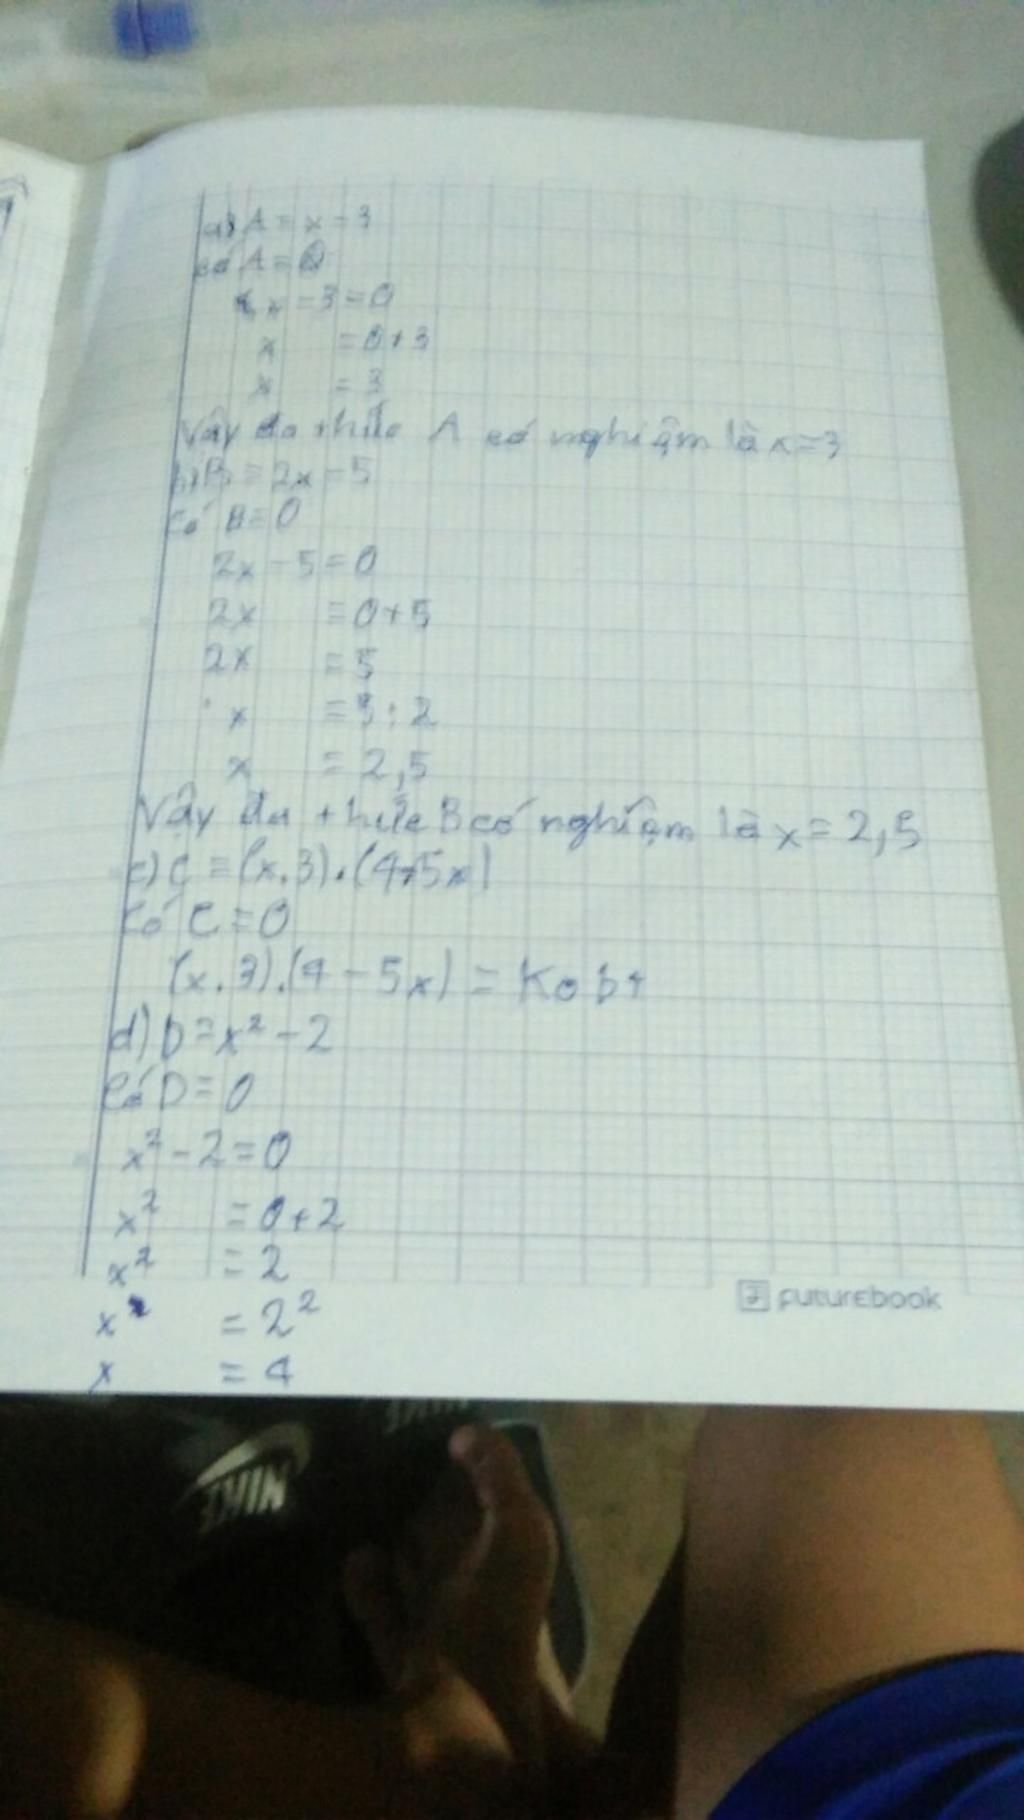 a) A = x - 3
có A = 0
x - 3 = 0
x = 0 + 3
x = 3
Vậy đa thức A có nghiệm là x = 3
b) B = 2x - 5
Có B = 0
2x - 5 = 0
2x = 0 + 5
2x = 5
x = 5 : 2
x = 2,5
Vậy đa thức B có nghiệm là x = 2,5
c) C = (x . 3) . (4 - 5x)
Có C = 0
(x . 3) . (4 - 5x) = Ko bt
d) D = x² - 2
Có D = 0
x² - 2 = 0
x² = 0 + 2
x² = 2
x = 2²
x = 4
futurebook
NIKE